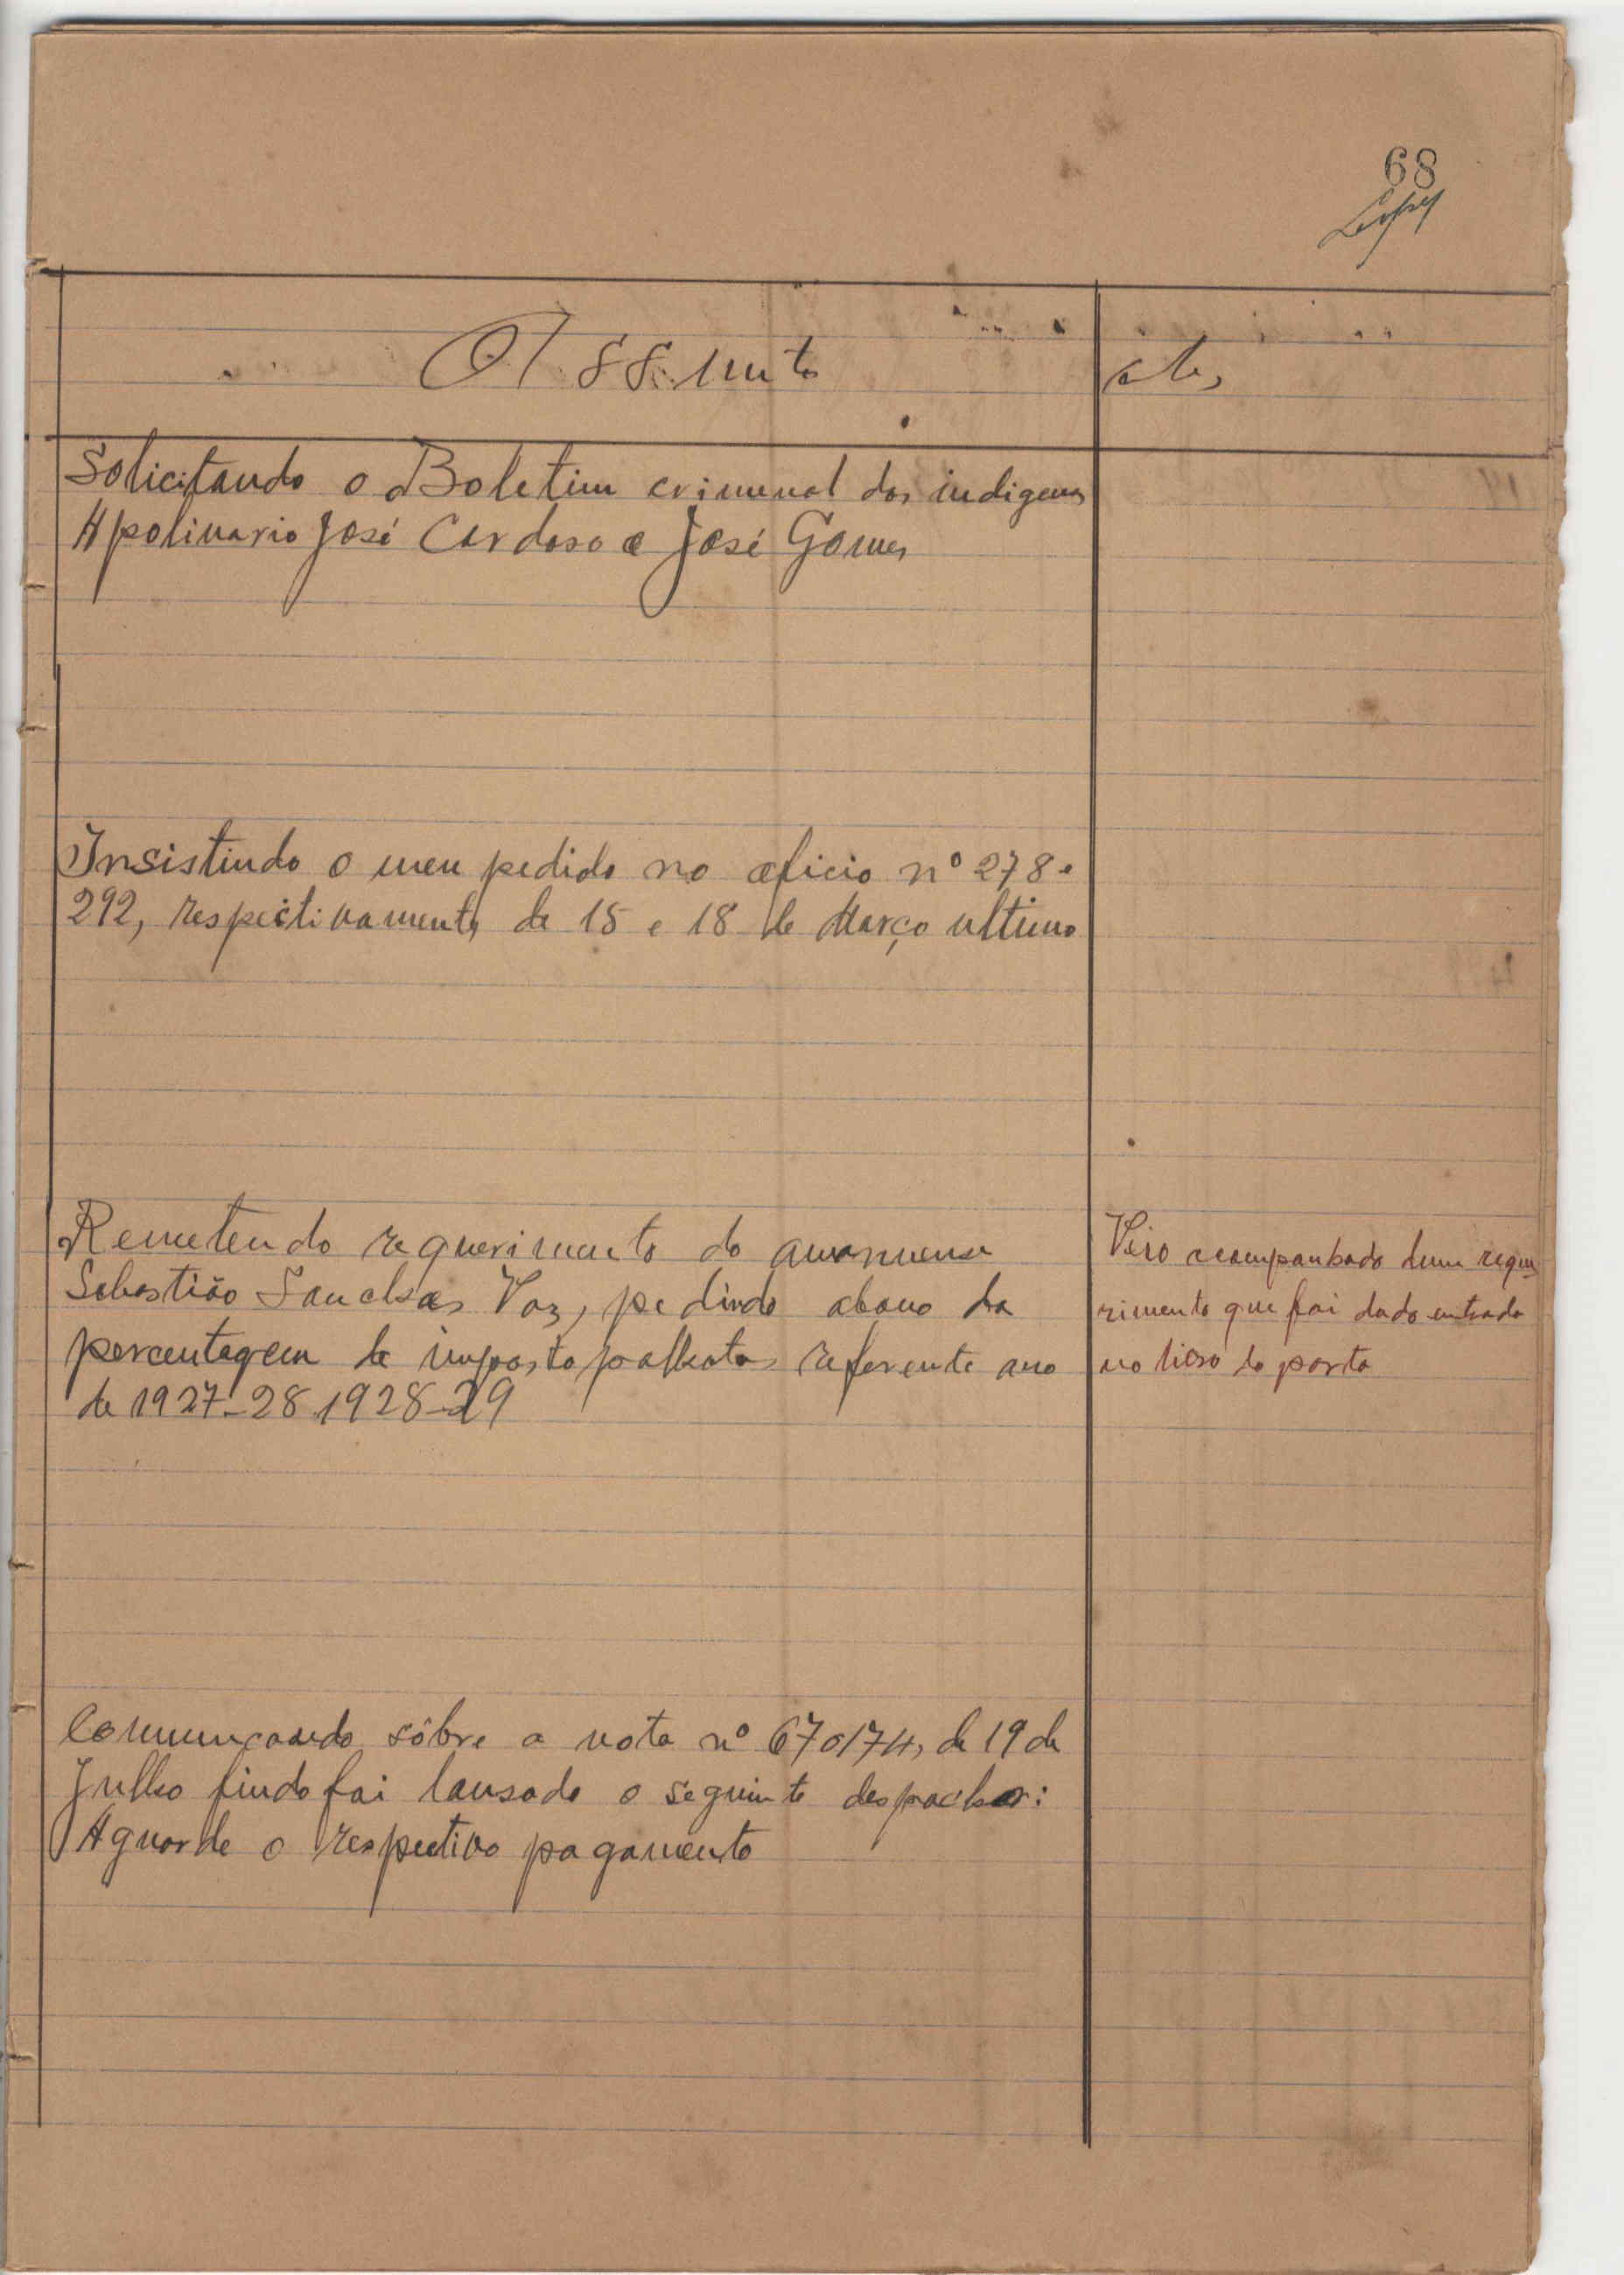 68
Assunto
Solicitando o Boletim criminal dos indigenas
Apolinario José Cardoso e José Gomes
Insistindo o meu pedido no oficio nº 278 e
292, respectivamente, de 15 e 18 de Março ultimo
Remetendo requerimento do amanuense
Sebastião Sanchas Vaz, pedindo abono da
percentagem de imposto palhota referente ano
de 1927-28 1928-29
Veio acompanhado dum reque
rimento que foi dado entrada
no livro da porta
Comunicando sôbre a nota nº 670/74, de 19 de
Julho findo foi lansado o seguinte despacho:
Aguarde o respectivo pagamento